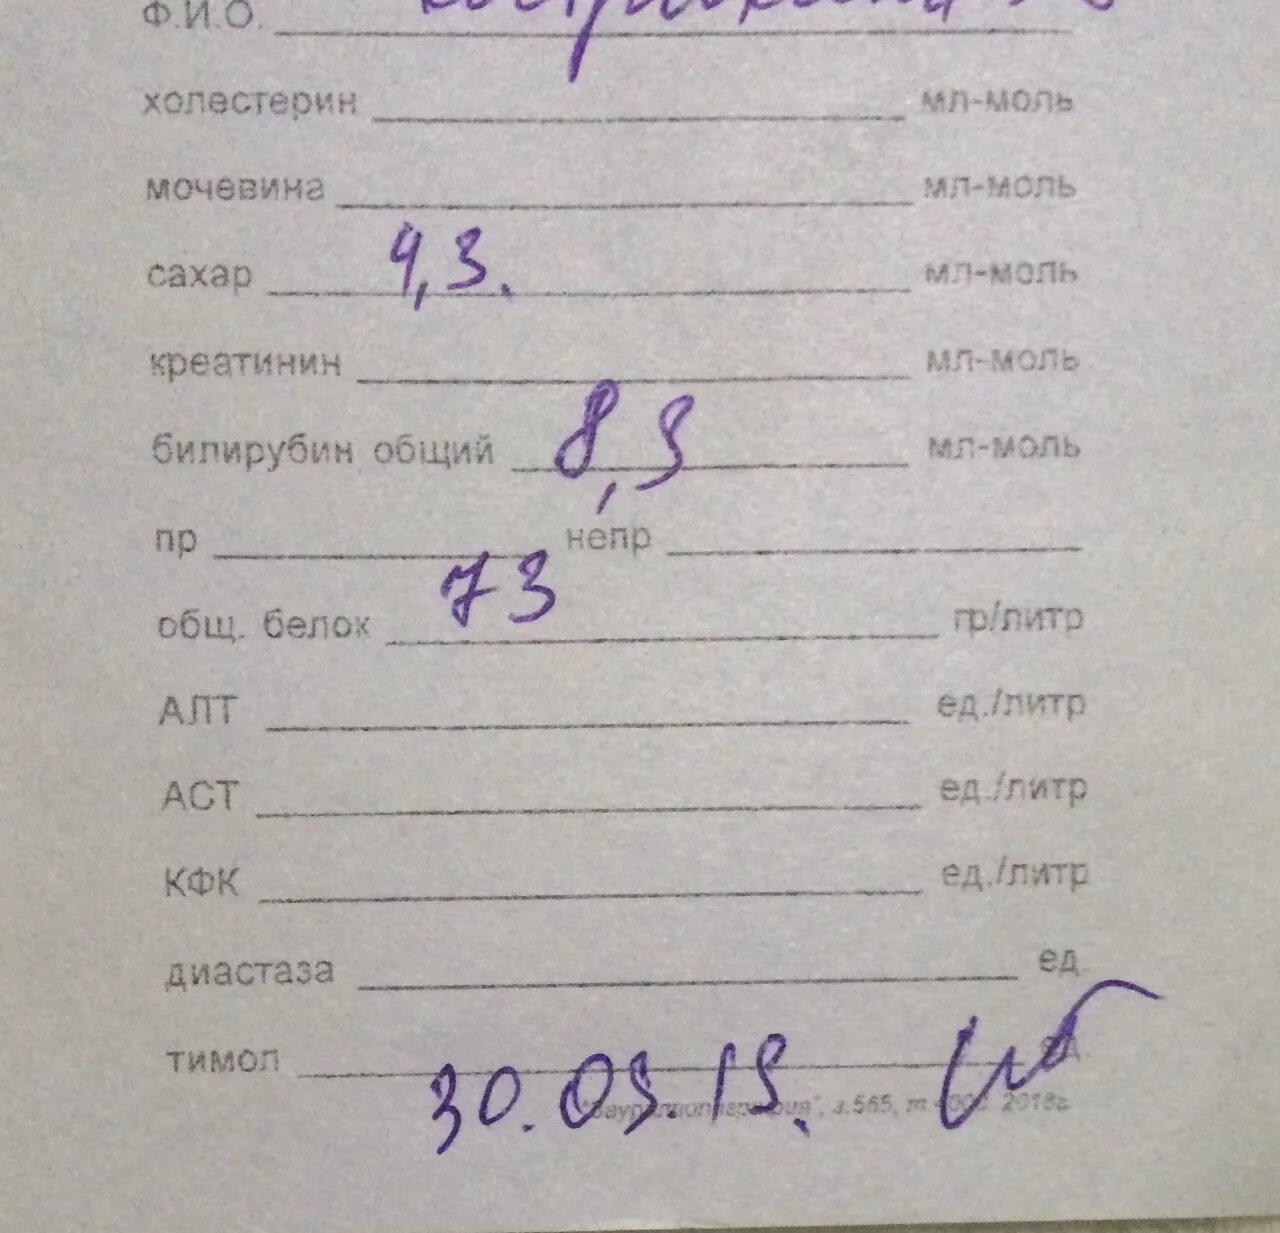 Ф.И.О.
холестерин мл-моль
мочевина мл-моль
сахар 4,3. мл-моль
креатинин мл-моль
билирубин общий 8,9 мл-моль
пр непр
общ. белок 73 гр/литр
АЛТ ед./литр
АСТ ед./литр
КФК ед./литр
диастаза ед
тимол ед.
30.09.19.
з.565, т 2018г.